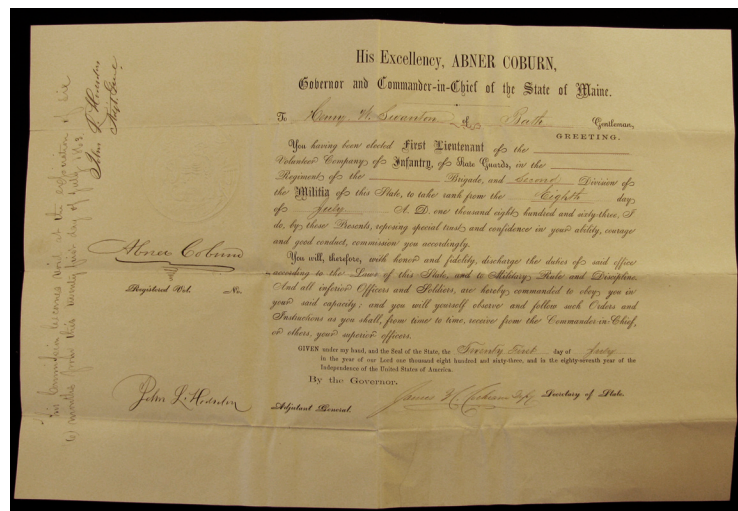 His Excellency, ABNER COBURN,
Governor and Commander-in-Chief of the State of Maine.
To Henry W. Swanton of Bath Gentleman,
GREETING.
You having been elected First Lieutenant of the
Volunteer Company of Infantry, of State Guards, in the
Regiment of the Brigade, and Second Division of
the Militia of this State, to take rank from the Eighth day
of July A. D. one thousand eight hundred and sixty-three. I
do, by these Presents, reposing special trust and confidence in your ability, courage
and good conduct, commission you accordingly.
You will, therefore, with honor and fidelity, discharge the duties of said office
according to the Laws of this State, and to Military Rule and Discipline.
And all inferior Officers and Soldiers, are hereby commanded to obey you in
your said capacity; and you will yourself observe and follow such Orders and
Instructions as you shall, from time to time, receive from the Commander-in-Chief,
or others, your superior officers.
GIVEN under my hand, and the Seal of the State, the Twenty First day of July
in the year of our Lord one thousand eight hundred and sixty-three, and in the eighty-seventh year of the
Independence of the United States of America.
By the Governor.
James Dep Secretary of State.
Adjutant General.
Abner Coburn
Registered Vol. No.
John L. Hodsdon
This Commission becomes void at the expiration of six
6) months from this twenty first day of July, 1863
John L Hodsdon
Adjt Genl